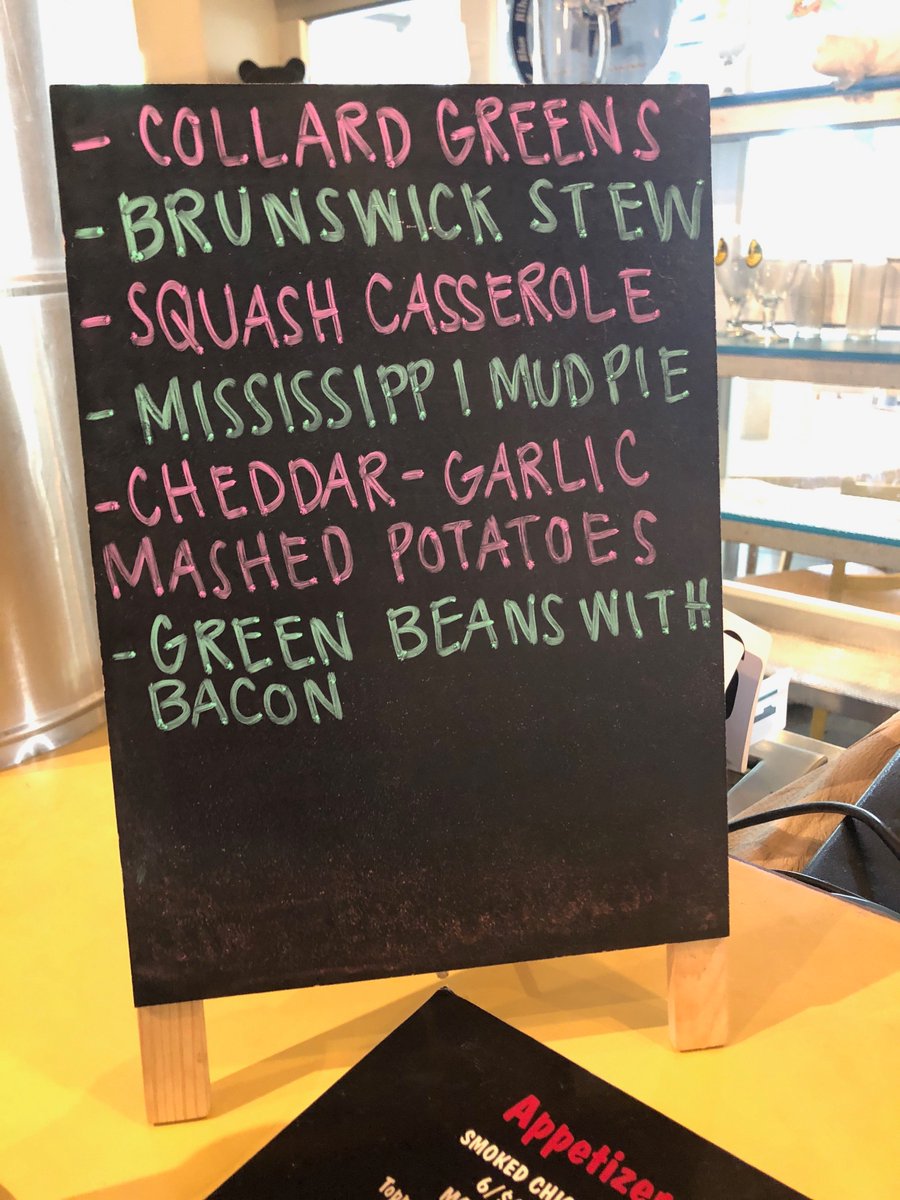 - COLLARD GREENS
- BRUNSWICK STEW
- SQUASH CASSEROLE
- MISSISSIPPI MUD PIE
- CHEDDAR - GARLIC
MASHED POTATOES
- GREEN BEANS WITH
BACON
Appetizer
SMOKED CHIC
6/$